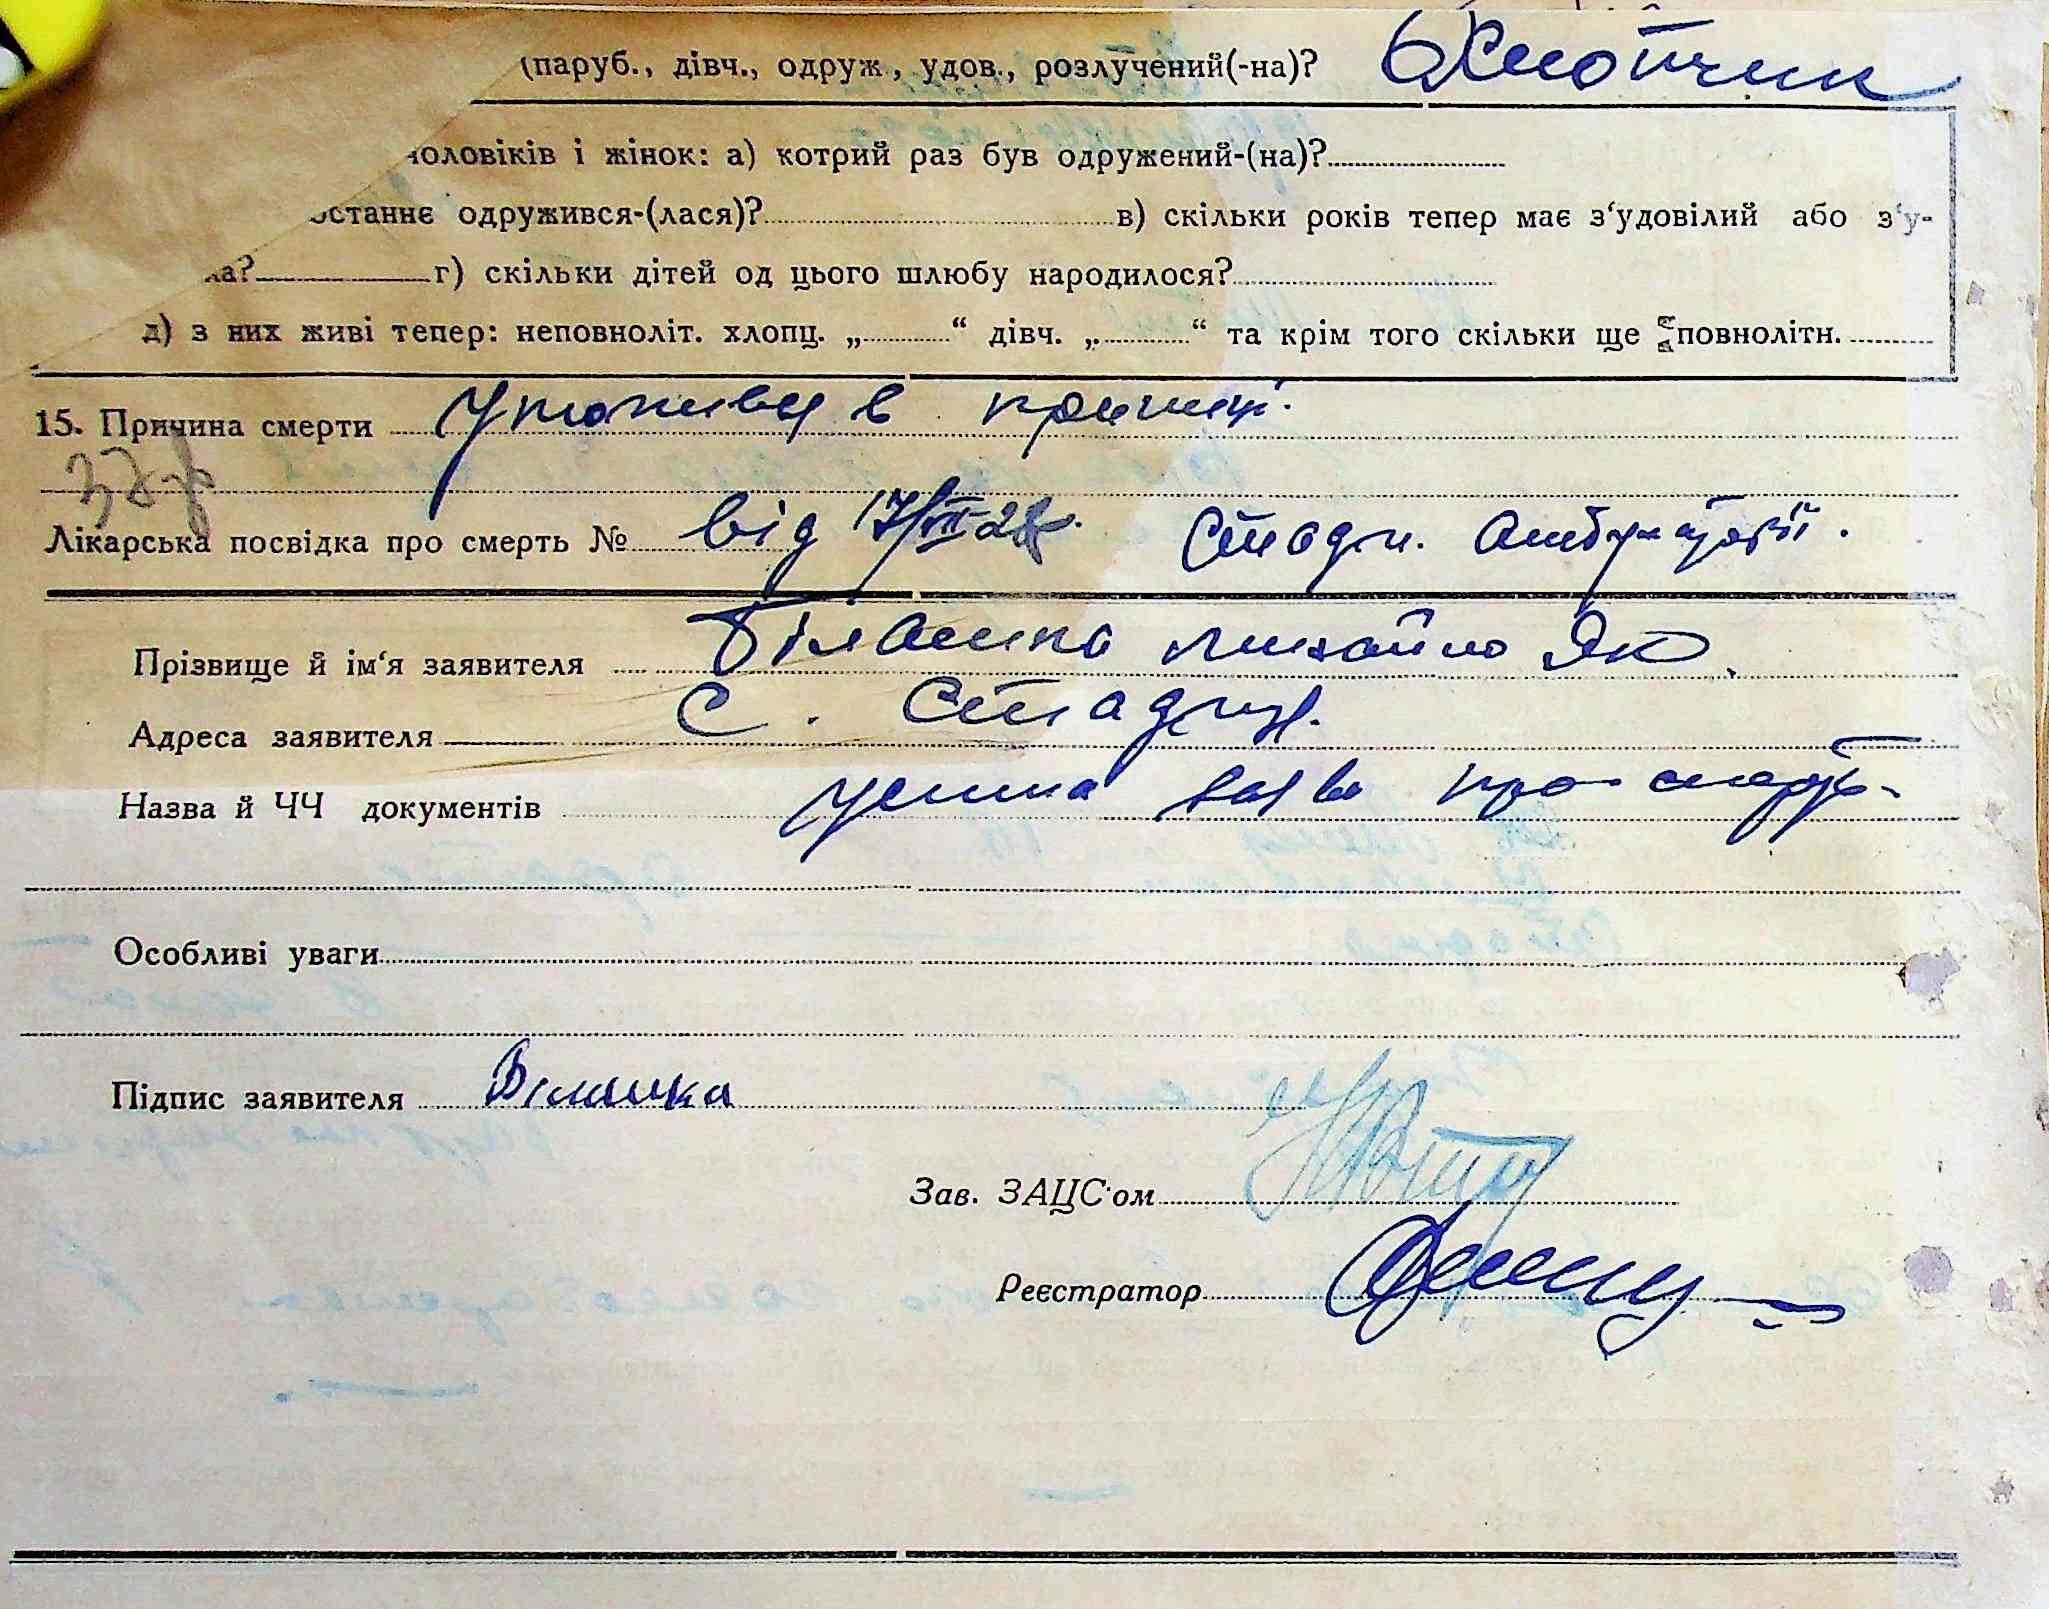 (паруб., дівч., одруж, удов., розлучений(-на)? Хлопчик
чоловіків і жінок: а) котрий раз був одружений-(на)?
останнє одружився-(лася)? в) скільки років тепер має з‘удовілий або з‘у-
ла? г) скільки дітей од цього шлюбу народилося?
д) з них живі тепер: неповноліт. хлопц. „ “ дівч. „ “ та крім того скільки ще повнолітн.
15. Причина смерти утопився в криниці.
Лікарська посвідка про смерть № від 17/VII-28р. Стадн. Амбуляторії.
Прізвище й ім‘я заявителя Білашка Михайло Як.
Адреса заявителя с. Стадня.
Назва й ЧЧ документів усна заява про смерть
Особливі уваги
Підпис заявителя Білашка
Зав. ЗАЦС‘ом
Реєстратор